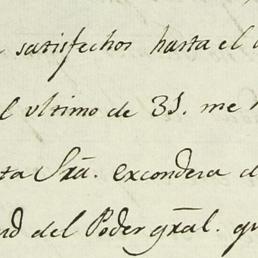 satisfechos hasta el
ultimo de 31. me
ta Sra. excondera d
del Poder gral. qu